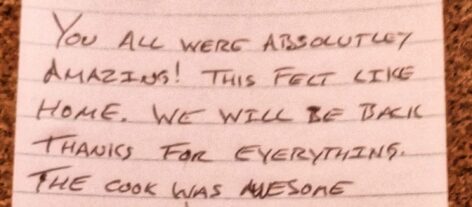 YOU ALL WERE ABSOLUTLEY
AMAZING! THIS FELT LIKE
HOME. WE WILL BE BACK
THANKS FOR EVERYTHING.
THE COOK WAS AWESOME